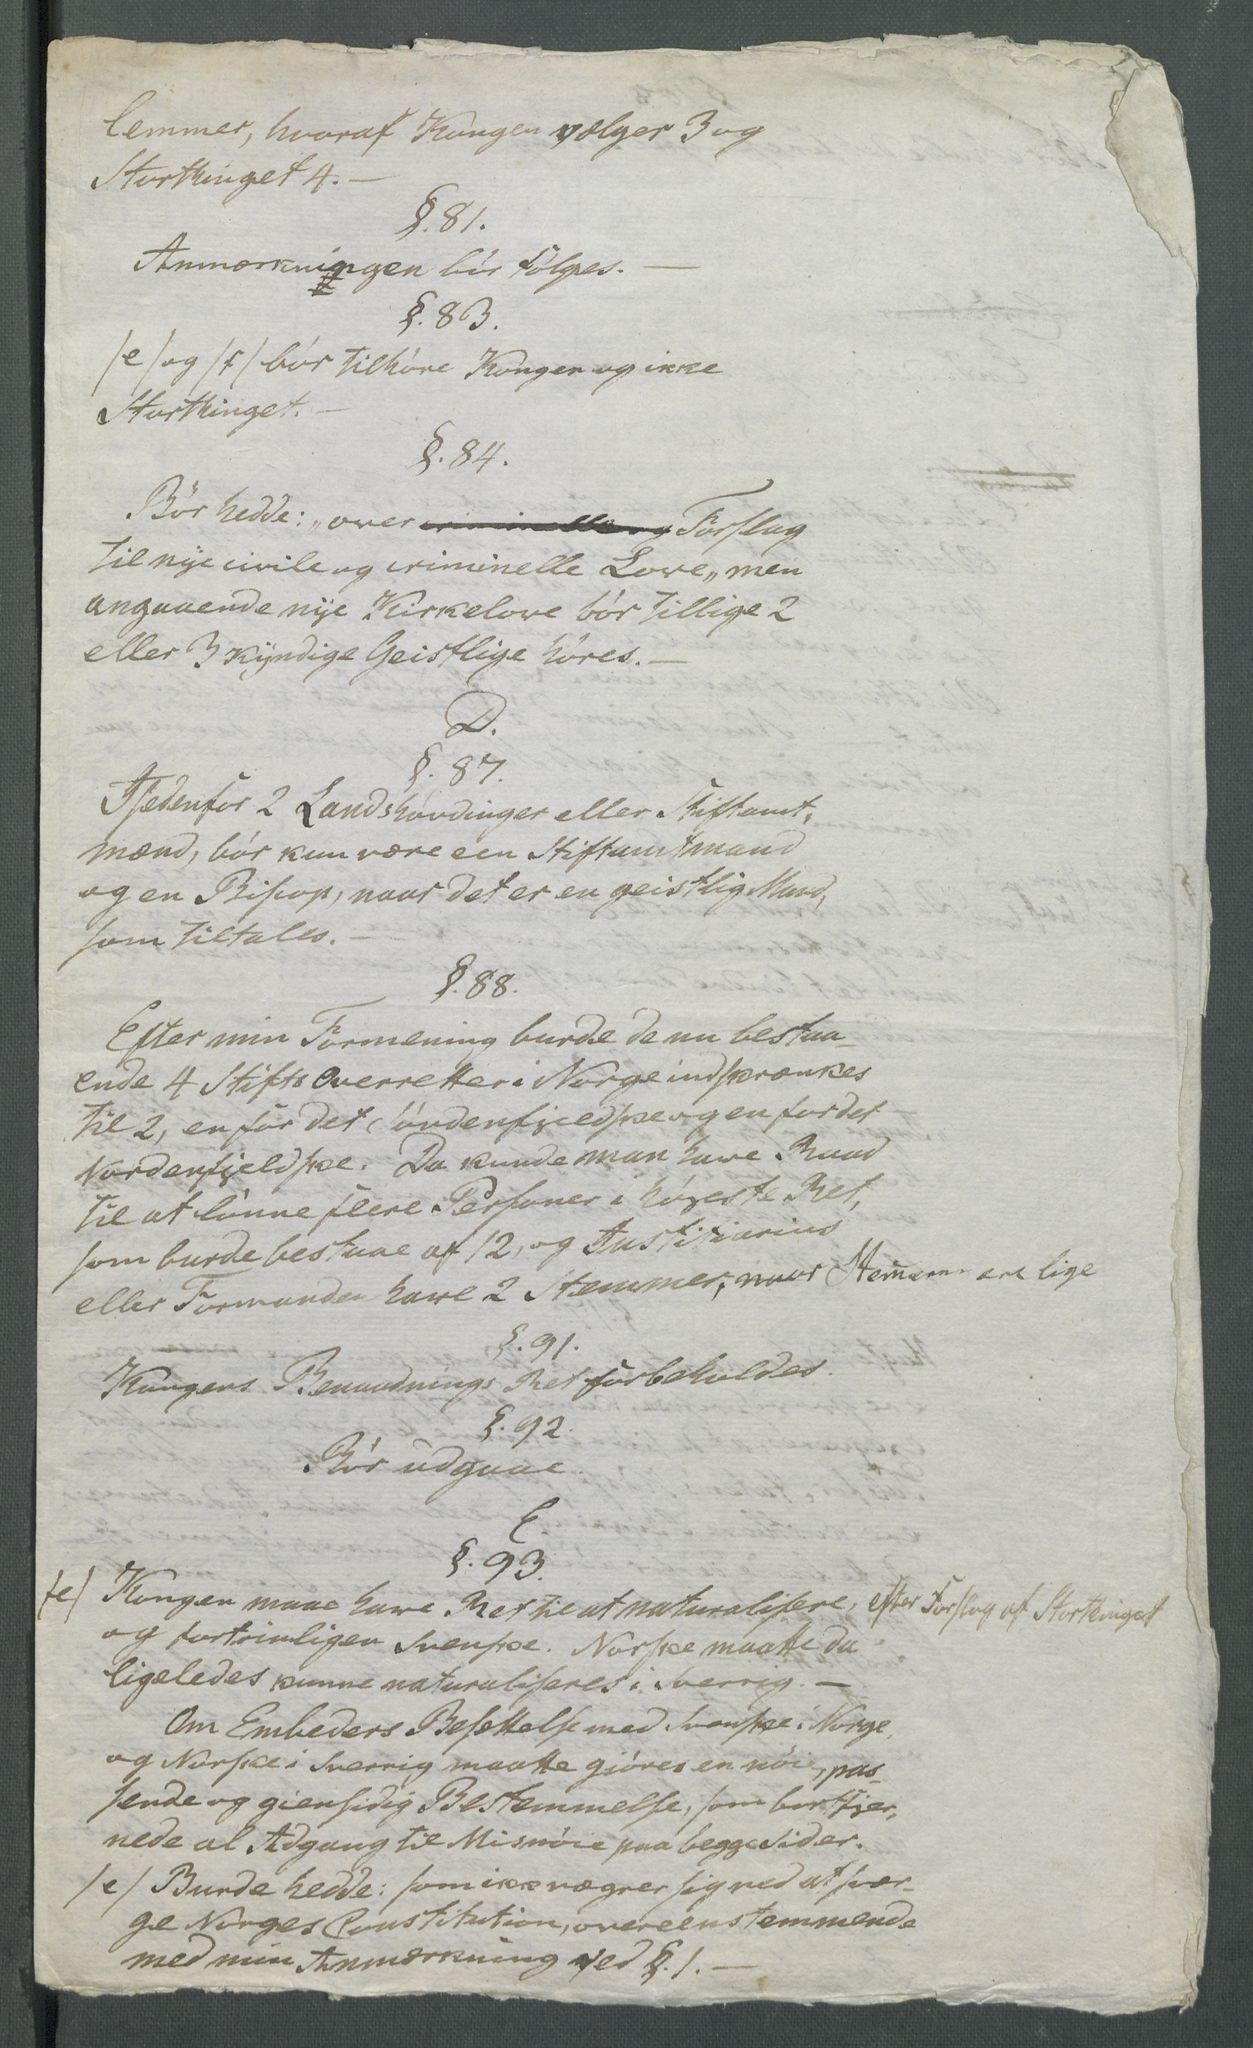 lemmer, hvoraf Kongen vælger 3 og
Storthinget 4. —
§. 81.
Anmærkningen bör fölges. —
§. 83.
/e/ og /f/ bör tilhöre Kongen og ikke
Storthinget. —
§. 84.
Bör hedde: „over criminelle og Forslag
til nye civile og criminelle Love„ men
angaaende nye Kirkelove bör tillige 2
eller 3 kyndige Geistlige höres. —
D.
§. 87.
Istedenfor 2 Landshövdinger eller Stiftamt,
mænd, bör kun være een Stiftamtmand
og en Biscop, naar det er en geistlig Mand,
som tiltales. —
§. 88.
Efter min Formening burde de nu bestaa-
ende 4 Stifts Overretter i Norge indskrænkes
til 2, en for det söndenfjeldske og en for det
Nordenfjeldske. Da kunde man have Raad
til at lönne flere Personer i höyeste Ret,
som burde bestaae af 12, og Justitiarius
eller Formanden have 2 Stemmer, naar Stemerne ere lige
§. 91.
Kongens Benaadnings Ret forbeholdes.
§. 92.
Bör udgaae.
E.
§. 93.
/e/ Kongen maae have Ret til at naturalisere, efter Forslag af Storthinget
og fortrinligen Svenske. Norske maatte da
ligeledes kunne naturaliseres i Sverrig. —
Om Embeders Besættelse med Svenske i Norge,
og Norske i Sverrig maatte giöres en nöie, pas-
sende og giensidig Bestemmelse, som bortfjer,
nede al Adgang til Misnöie paa begge Sider.
/e/ Burde hedde: som ikke vægrer sig ved at svær-
ge Norges Constitution, overeenstemmende
med min Anmærkning ved §. 1. —